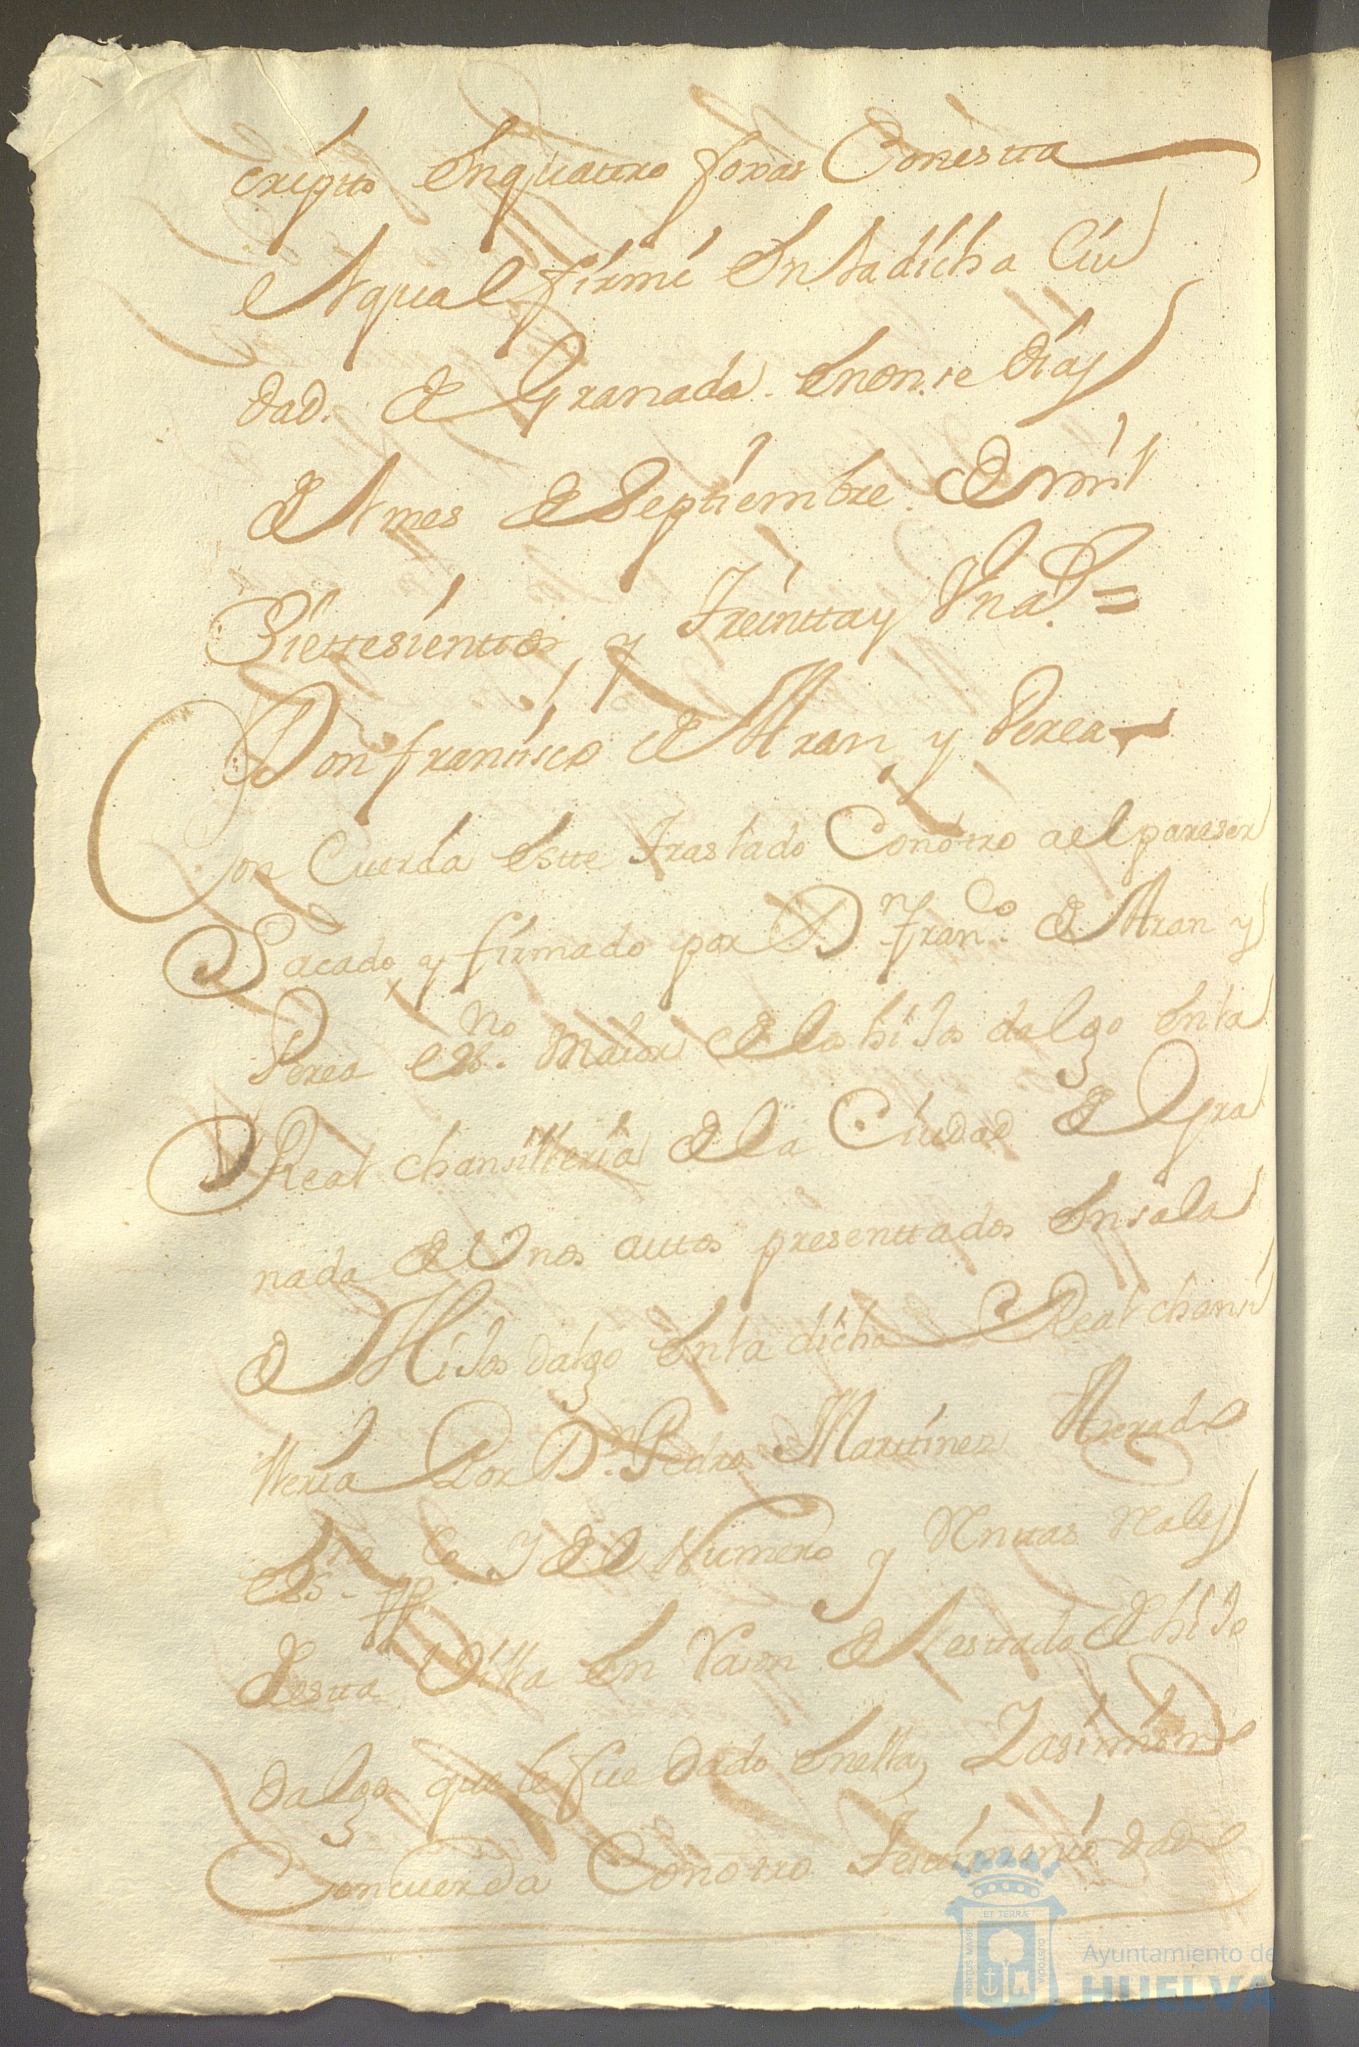 cripto En quattro foxas Con estta
el qual firmé En la dicha Ciu
dad. de Granada. En onse días
del mes de Septiembre. de mil
Siettesienttos y Treintta y Una. =
Don francisco de Aran y Perea
Con Cuerda estte traslado Con otro al pareser
Sacado y firmado por Dn. Franco. de Aran y
Perea Esno. Maior de los hiJos dalgo en la
Real chansilleria de la Ciudad de Gra
nada de Unos auttos presenttados En sala
de HiJos dalgo en la dicha Real chansi
lleria Por Dn. Pedro Marttinez
Essno. pp.co y del Numero y Renttas Rales
de estta Villa en Rason del esttado de hiJo
dalgo que le fue dado En ella, Y asimismo
Concuerda Con otro Testimonio dado
ET TERRÆ
PORTUS MARIS
CUSTODIA
Ayuntamiento de
HUELVA